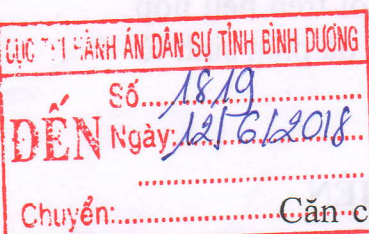 CỤC THI HÀNH ÁN DÂN SỰ TỈNH BÌNH DƯƠNG
Số.....1819
ĐẾN Ngày: 12/6/2018
Chuyển:.................. Căn c